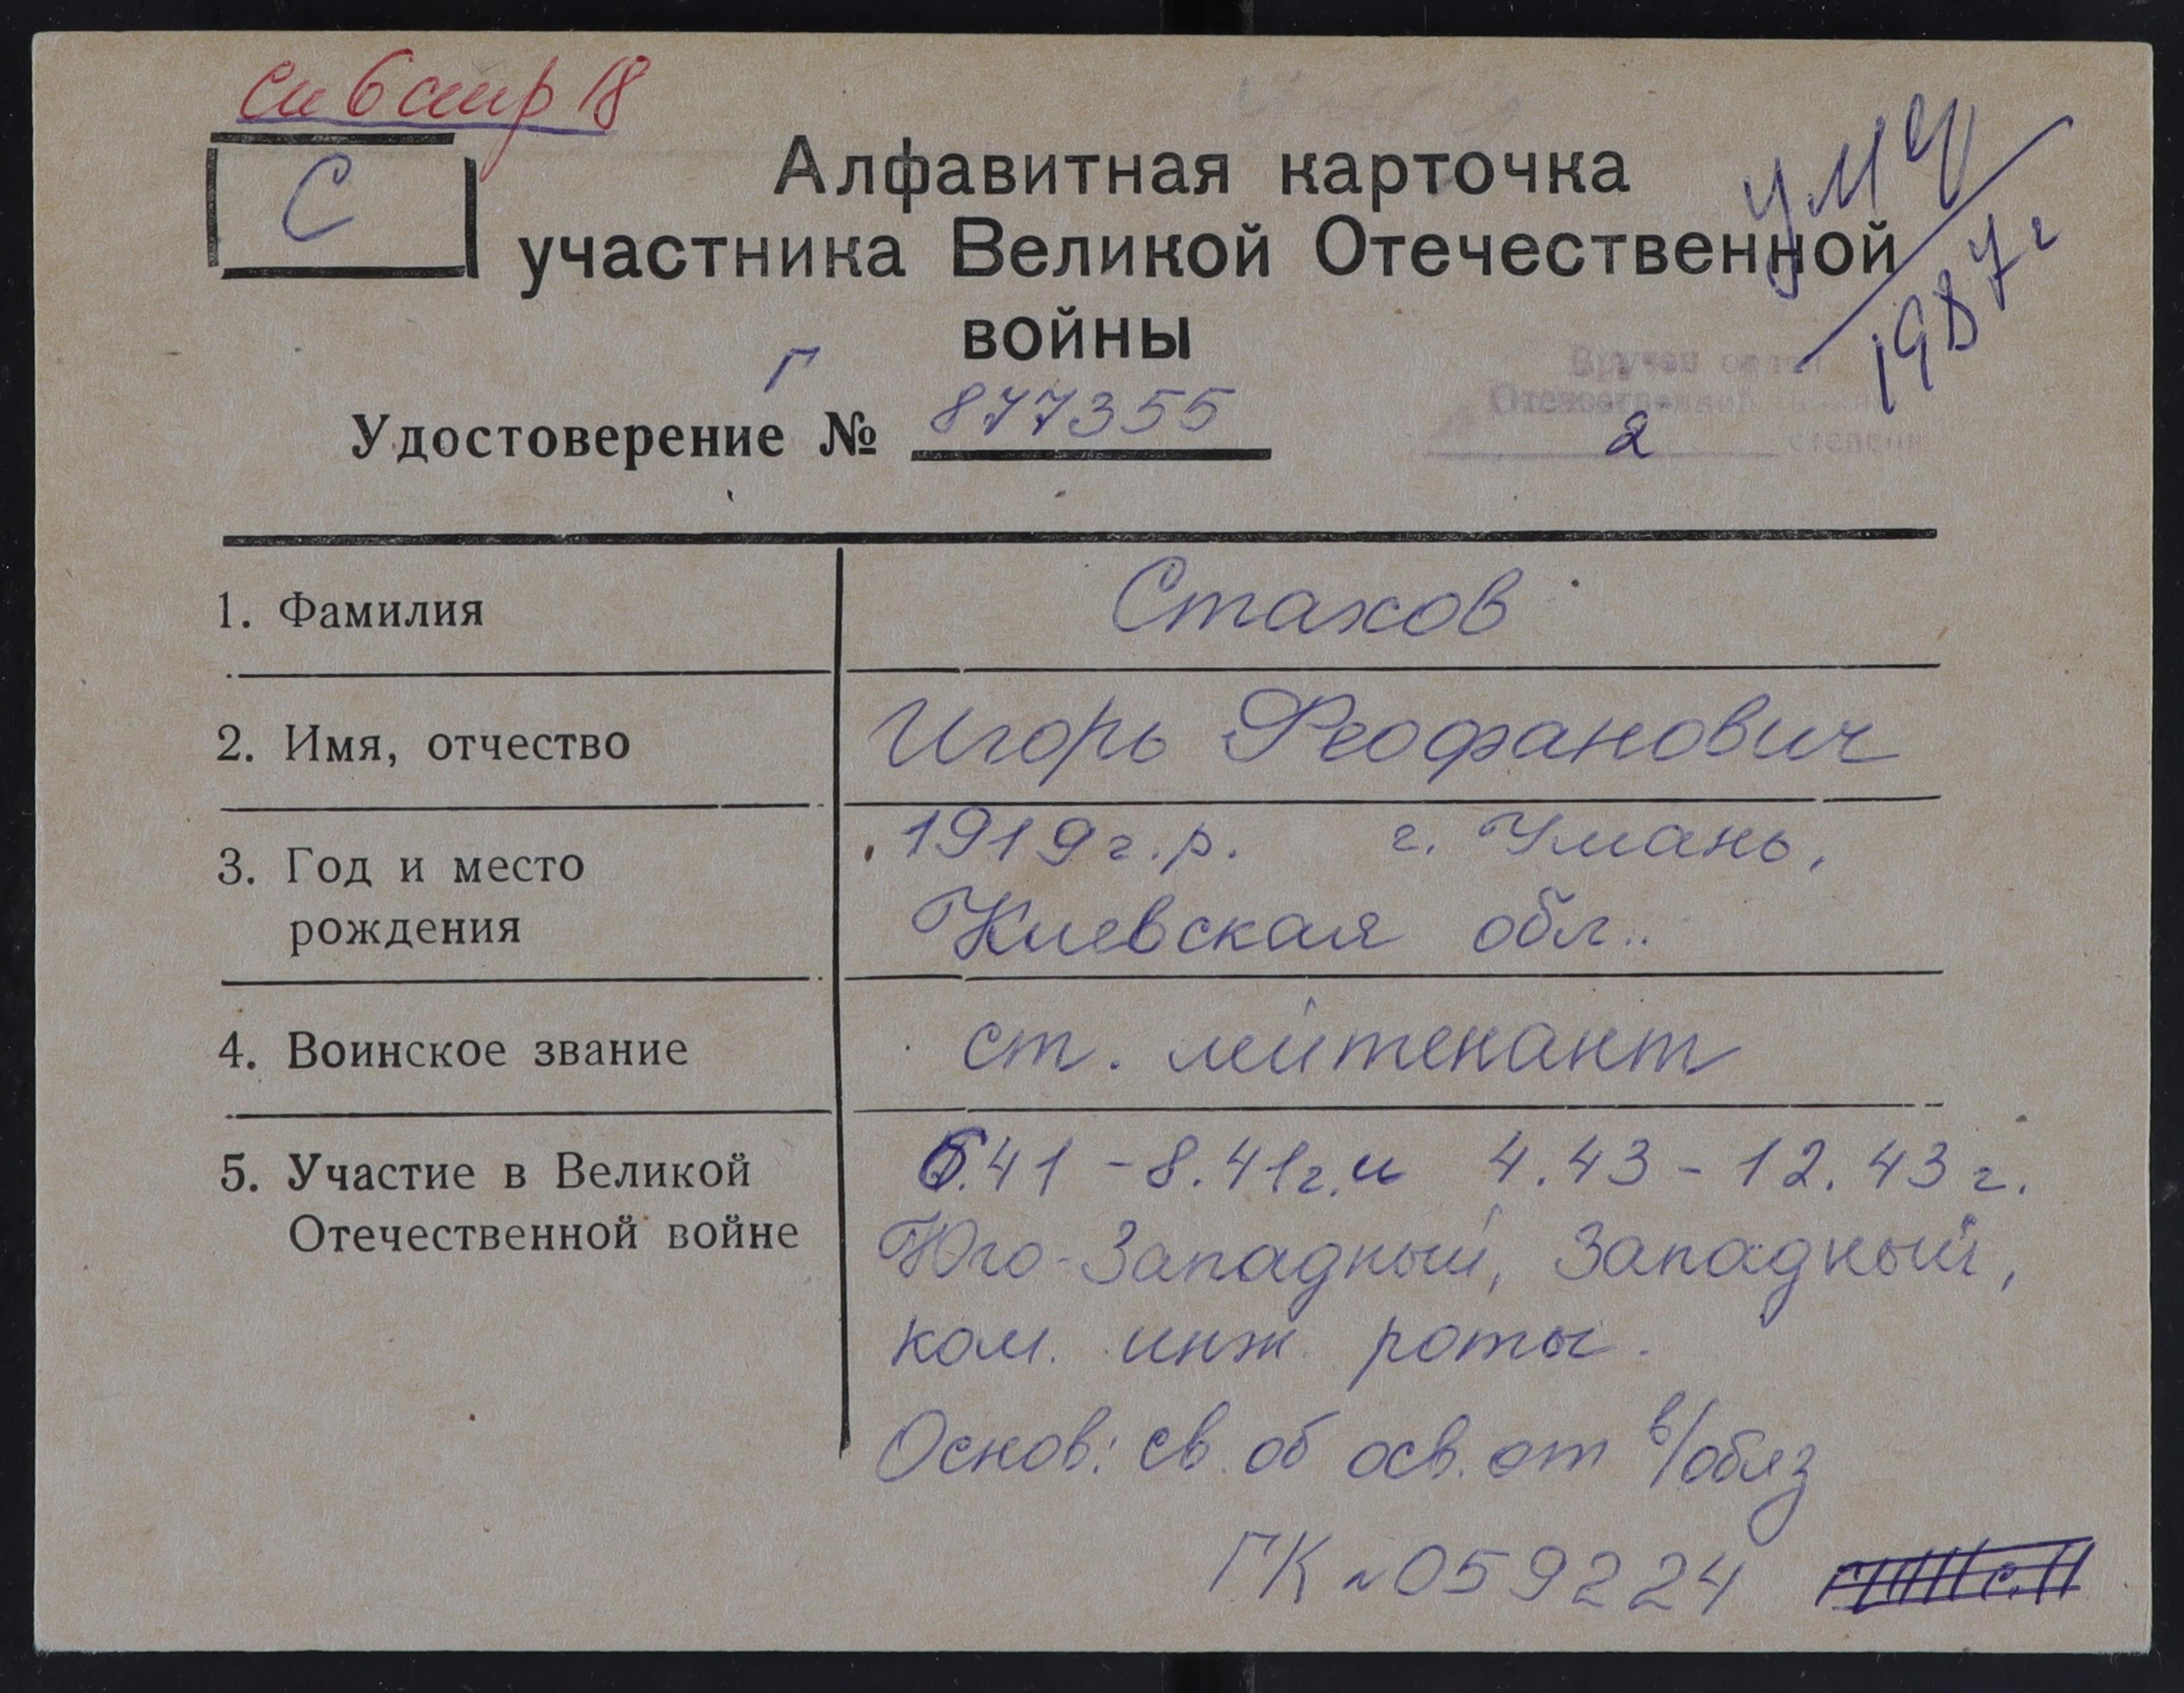 сп 6 стр 18
С
Алфавитная карточка
участника Великой Отечественной
войны
умч
1987г
Г
Удостоверение № 877355
Вручен орден
Отечественной войны
2 степени
1. Фамилия Стахов
2. Имя, отчество Игорь Феофанович
3. Год и место 1919 г.р. г. Умань,
рождения Киевская обл..
4. Воинское звание ст. лейтенант
5. Участие в Великой 6.41 - 8.41г. и 4.43 - 12.43 г.
Отечественной войне Юго-Западный, Западный,
ком. инж. роты.
Основ: св. об осв. от в/обяз
ГК № 059224